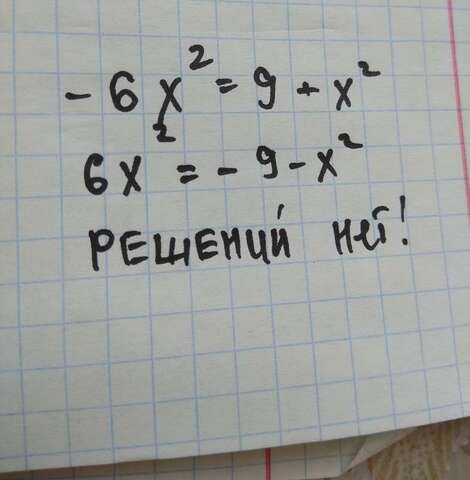 - 6x² = 9 + x²
6x² = - 9 - x²
РЕШЕНИЙ НЕТ!